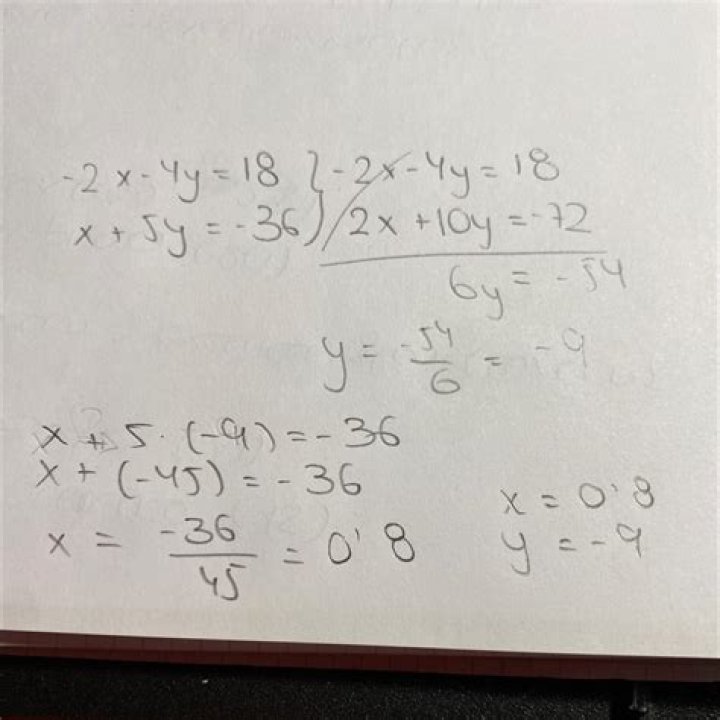 -2x-4y=18 } -2x-4y=18
x+5y=-36 ) 2x+10y=-72
6y=-54
y = -54/6 = -9
x + 5·(-9) = -36
x + (-45) = -36
x = -36/45 = 0'8
x = 0'8
y = -9